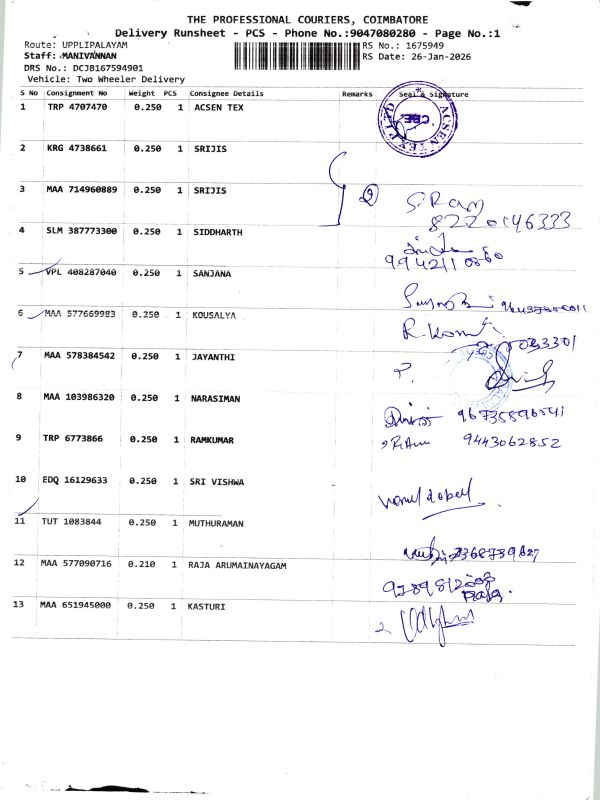 THE PROFESSIONAL COURIERS, COIMBATORE
Delivery Runsheet - PCS - Phone No.:9047080280 - Page No.:1
Route: UPPLIPALAYAM RS No.: 1675949
Staff: MANIVANNAN RS Date: 26-Jan-2026
DRS No.: DCJB167594901
Vehicle: Two Wheeler Delivery
S No Consignment No Weight PCS Consignee Details Remarks Seal & Signature
1 TRP 4707470 0.250 1 ACSEN TEX
ACSEN TEX
CBE
2 KRG 4738661 0.250 1 SRIJIS
3 MAA 714960889 0.250 1 SRIJIS
2 S.Ram
8220146333
4 SLM 387773300 0.250 1 SIDDHARTH
5 VPL 408287040 0.250 1 SANJANA
6 MAA 577669983 0.250 1 KOUSALYA
7 MAA 578384542 0.250 1 JAYANTHI
8 MAA 103986320 0.250 1 NARASIMAN
9 TRP 6773866 0.250 1 RAMKUMAR 9443062852
10 EDQ 16129633 0.250 1 SRI VISHWA
11 TUT 1083844 0.250 1 MUTHURAMAN
12 MAA 577090716 0.210 1 RAJA ARUMAINAYAGAM
Raja.
13 MAA 651945000 0.250 1 KASTURI